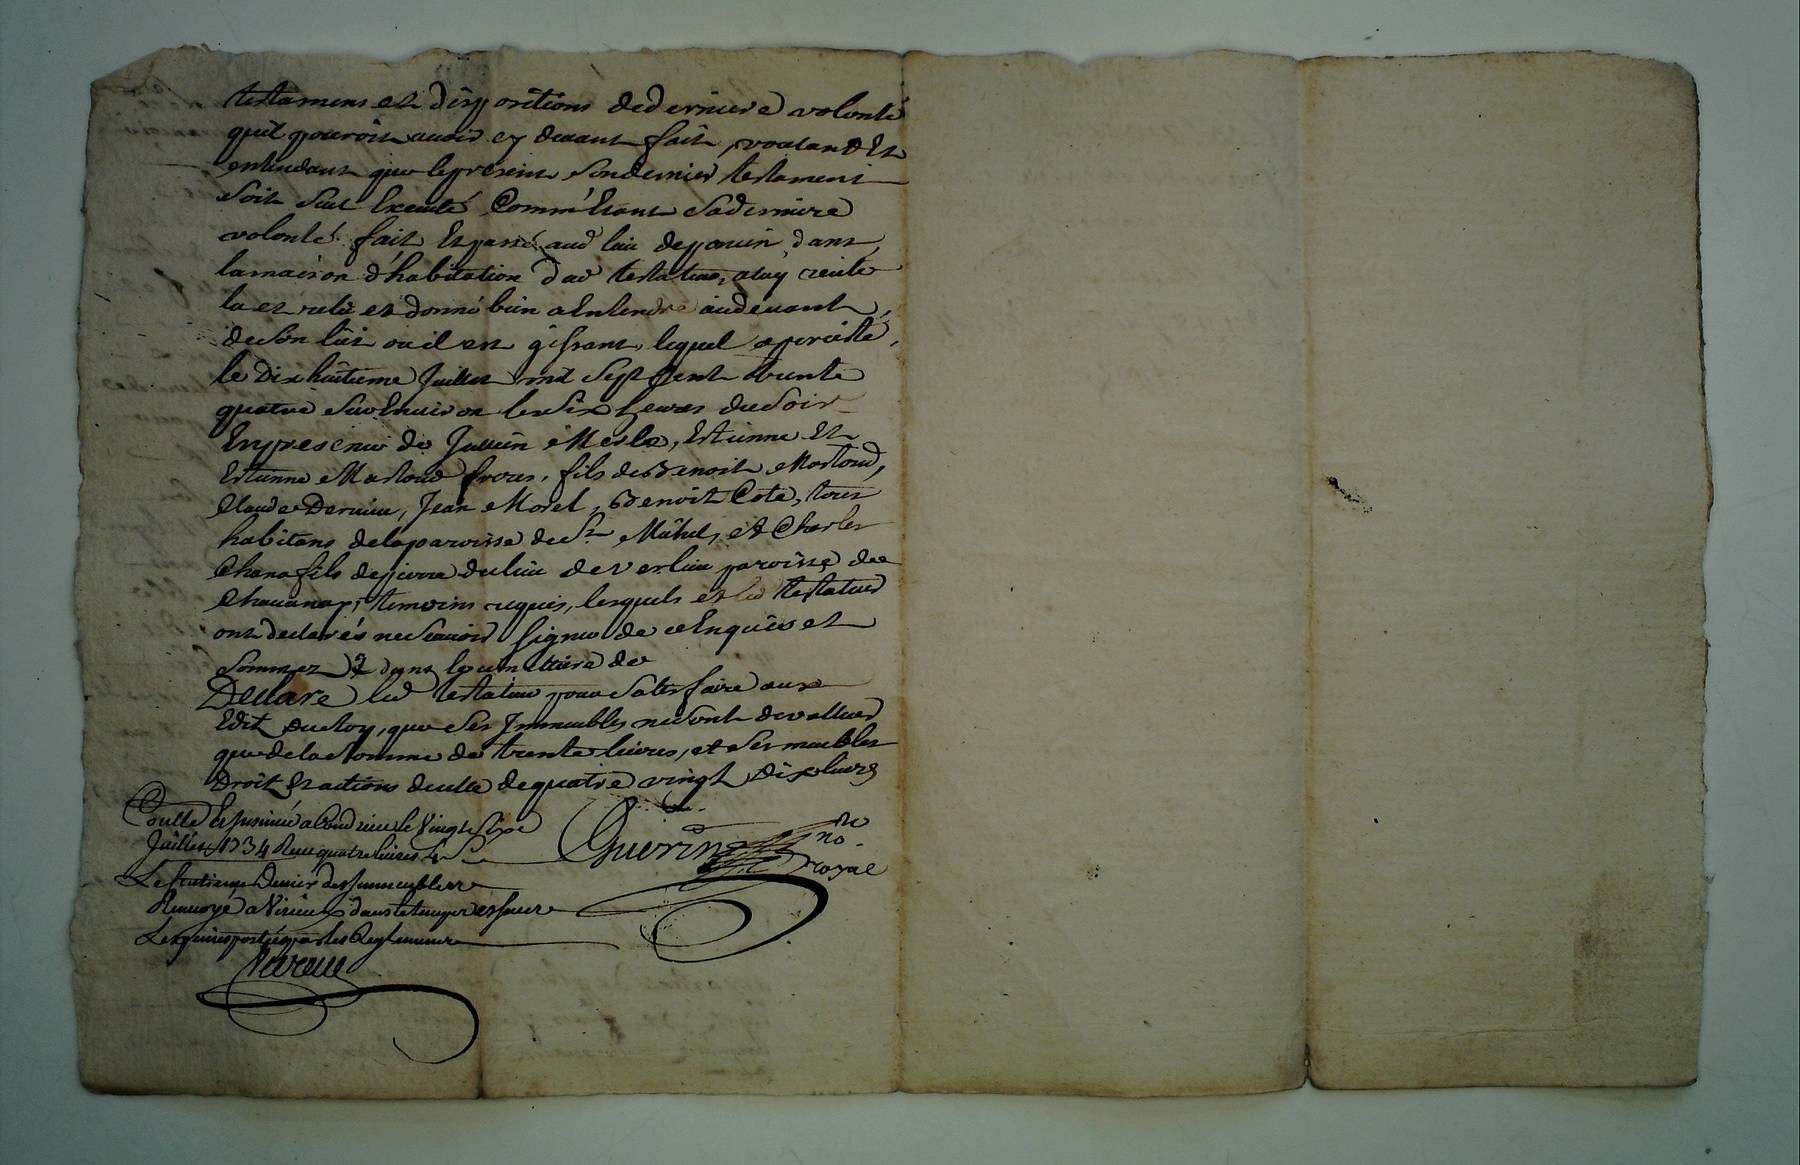 testamens et dispositions de derniere volonté
quil pouroit avoir cy devant fait, voulant Et
entendant que le present son dernier testament
soit seul Executé Comm'Etant sa derniere
volonté. fait Et passé aud lieu de dans
la maison d'habitation dud testateur, a luy recité
lu et relu et donné bien a Entendre au devant
de son lit ou il est gissant, lequel a persisté,
le Dix huitieme Juillet mil sept Cent trente
quatre sur Environ les six heures du soir
En presence de Jullien Merle, Estienne Et
Estienne Mastoud freres, fils de Benoit Mastoud,
Claude Dervieu, Jean Morel, Benoit Cote, tous
habitans de la paroisse de St Michel, et Charles
Chana fils de pierre du lieu de Verlieu paroisse de
Chavanay, temoins requis, lesquels et led testateur
ont declarés ne scavoir signer de ce Enquis et
sommez
Declare led testateur pour satisfaire aux
Edit du Roy, que ses Immeubles ne sont de valleur
que de la somme de trente livres, et ses meubles
Droit Et actions de celle de quatre vingt Dix livres
Guerin nore
royal
Conllé Et Insinué a Condrieu le Vingt Six
Juillet 1734 Receu quatre livres 4 s
Le Centieme Denier des Immeubles
Renvoyé a Virieu dans le temps et sous
Les peines portées par les Reglemens